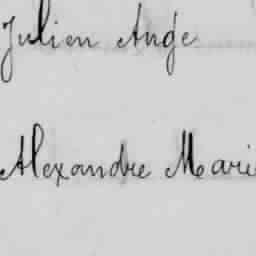 Julien Ange
Alexandre Marie